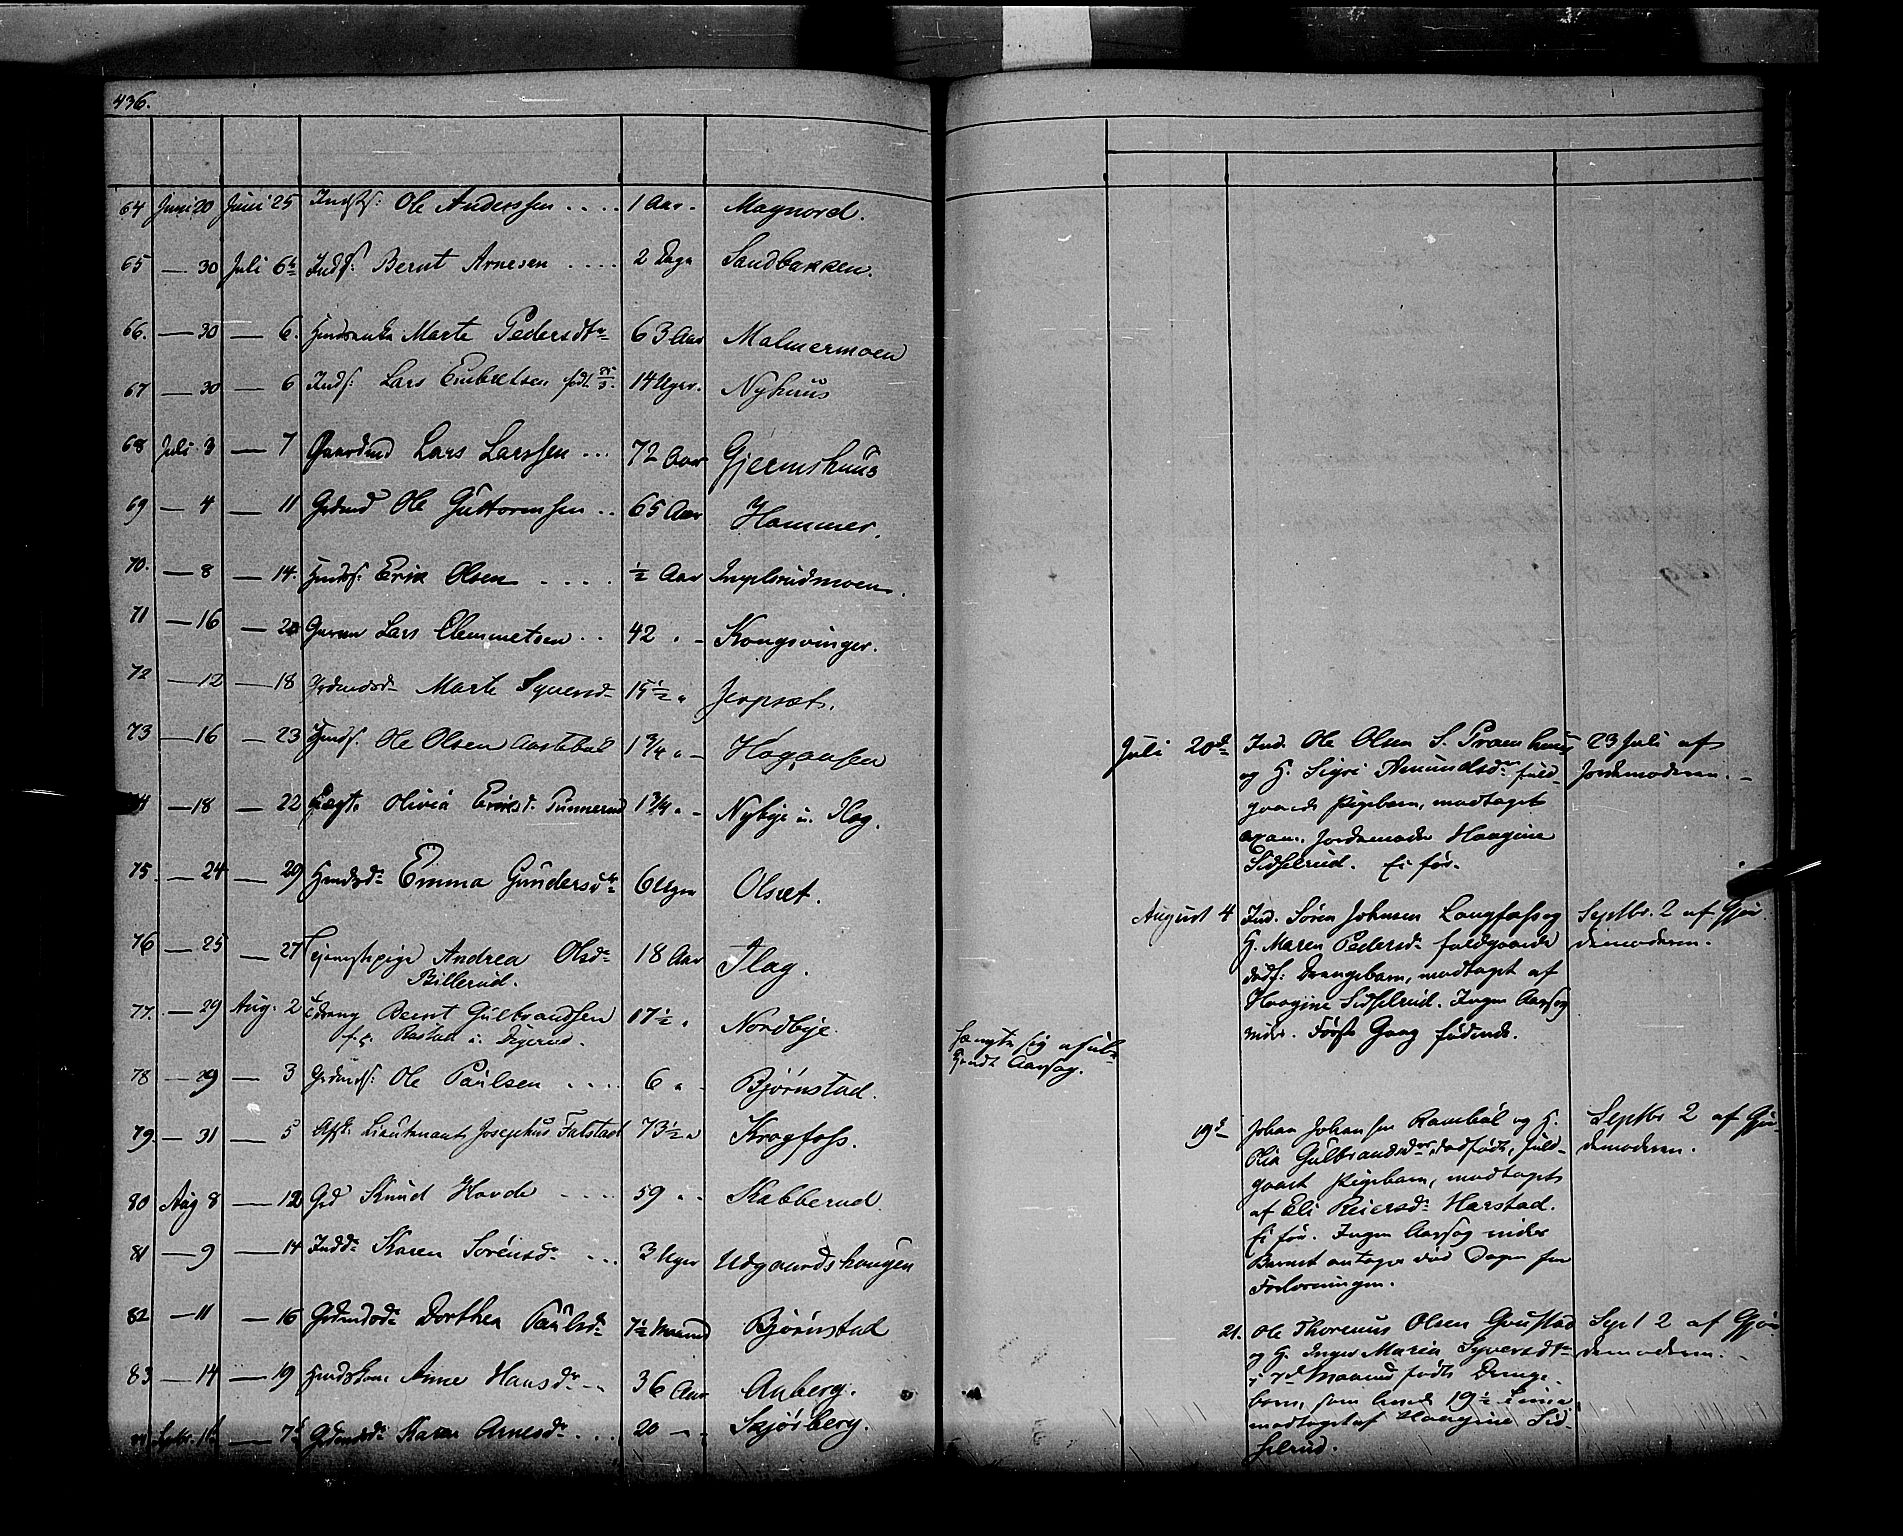 436.
64 Juni 20 Juni 25 Inds: Ole Anderssen .... 1 Aar. Magnord.
65 — 30 Juli 6 Inds: Bernt Arnesen .... 2 Dage Sandbakken.
66. — 30 — 6. Marte Pedersdtr 63 Aar Malmermoen
67 — 30 — 6 Inds: Lars Embretsen født 14 Uger. Nyhuus
68 Juli 3 — 7 Gaardmd Lars Larssen ... 72 Aar Gjermshuus
69 — 4 — 11 Grdmd Ole Guttormsen .. 65 Aar Hammer.
70. — 8 — 14. Hmds: Erik Olsen .... ½ Aar Ingelsrudmoen.
71 — 16 — 20 Lars Clemmetsen .. 42 " - Kongsvinger.
72 — 12 — 18 Grdmdsdr Marte Syversdr 15½ " Jerpset.
73 — 16 — 23 Hmds. Ole Olsen Aastebøl 1 ¾ " - Høgaasen
74 — 18 — 22 Lægd. Olivia Eriksd. Tunnerud 1 ¾ " - Nybye u. Hog.
75. — 24 — 29 Hmdsdr Emma Gundersdtr 6 Uger Olset.
76 — 25 — 27 Tjenestpige Andrea Olsdr 18 Aar Ilag.
Billerud.
77. — 29 Aug. 2 Bernt Gulbrandsen 17½ " Nordbye.
78 — 29 — 3 Grdmds: Ole Paulsen .... 6 " - Bjørnstad.
79 — 31 — 5 Afsk. Lieutenant Josephus Falstad 73½ " Krogfoss.
80 Aug 8 — 12 Grd Knud Hovde .... 59 " - Kabberud.
81 — 9 — 14 Indsdr Karen Sørensdr ... 3 Uger Udgaardshaugen
82 — 11 — 16 Grdmdsdr Dorthea Paulsdr 7½ Maaned Bjørnstad
83 — 14 — 19 Hmdskone Anne Hansdr .. 36 Aar Aaberg.
Septbr. — 7 Grdmdsdr Karen Arnesdr ... 20 - - Skjørberg.
hængte sig
Aarsag.
Juli 20de Ind. Ole Olsen S. og H. Sigri Amundsdr fuld-
gaaende Pigebarn, modtaget
Jordemoder Haagine
Sidselrud. Ei før.
23 Juli af
Jordemoderen. -
August 4 Ind. Søren Johnsen Langfoss og
H. Maren Pedersdr fuldgaaende
dødf: Drengebarn, modtaget af
Haagine Sidselrud. Ingen Aarsag
vides. Første Gang fødende.
Septbr. 2 af Gjør-
demoderen.
19de Johan Johansen Rambøl og H.
Olia Gulbrandsdr dødfødt, fuld-
gaaet Pigebarn, modtaget
af Eli Reiersdr Harstad.
Ei før. Ingen Aarsag vides
Barnet antages død Dagen før
Forløsningen.
Septbr 2 af Gjør-
demoderen.
21. Ole Thorenius Olsen Goustad
og H. Inger Maria Syversdtr
i 7de Maaned født Drenge-
barn, som levede 19½ Time
modtaget af Haagine Sid-
selrud.
Sept 2 af Gjør-
demoderen.